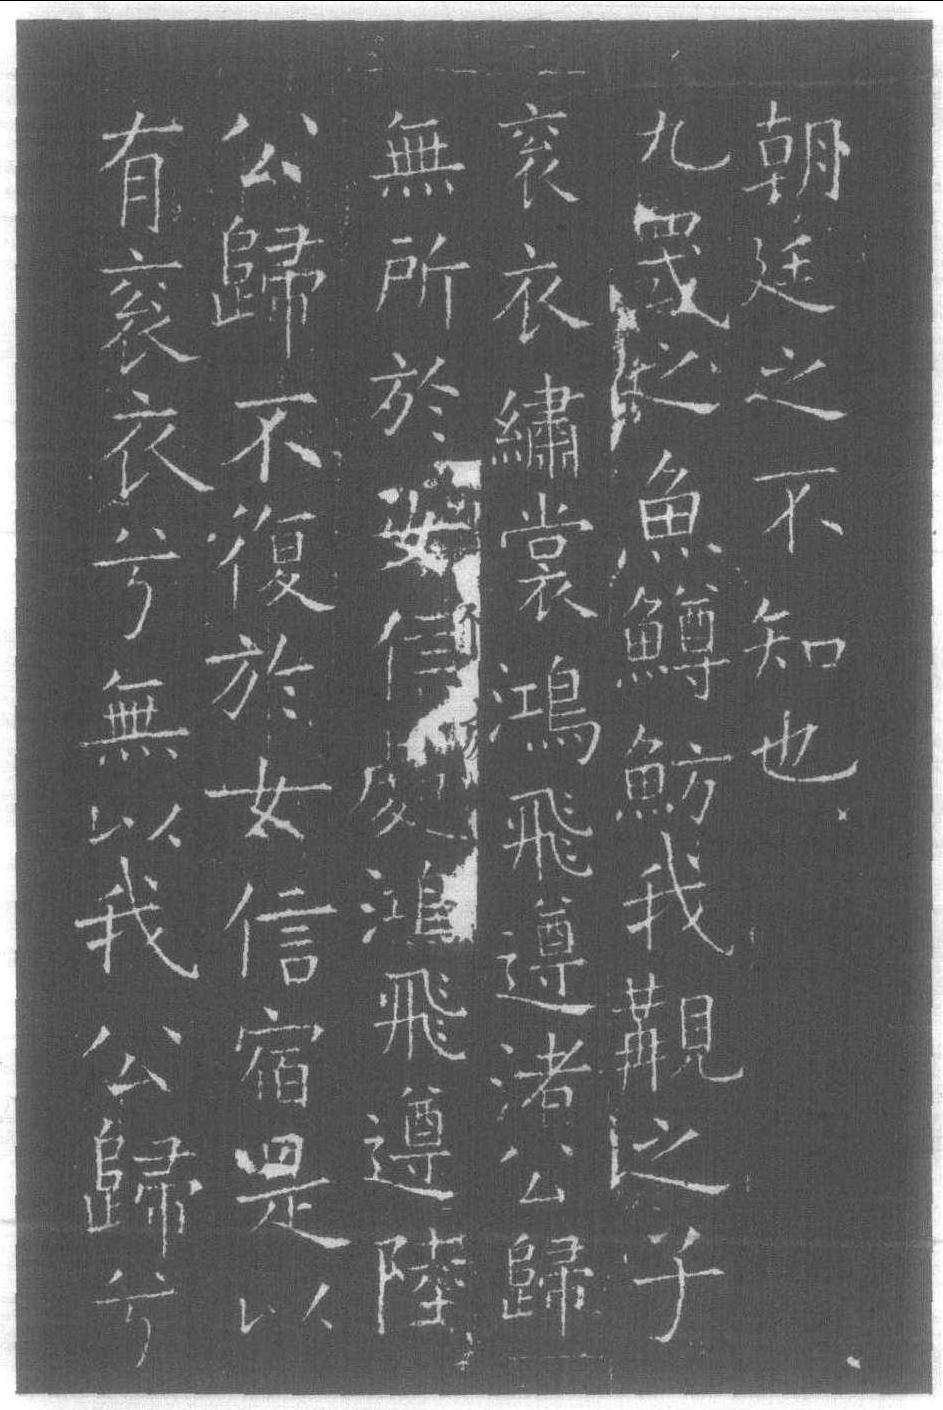 朝廷之不知也
九罭之魚鱒魴我覯之子
衮衣繡裳鴻飛遵渚公歸
無所於女信處鴻飛遵陸
公歸不復於女信宿是以
有衮衣兮無以我公歸兮